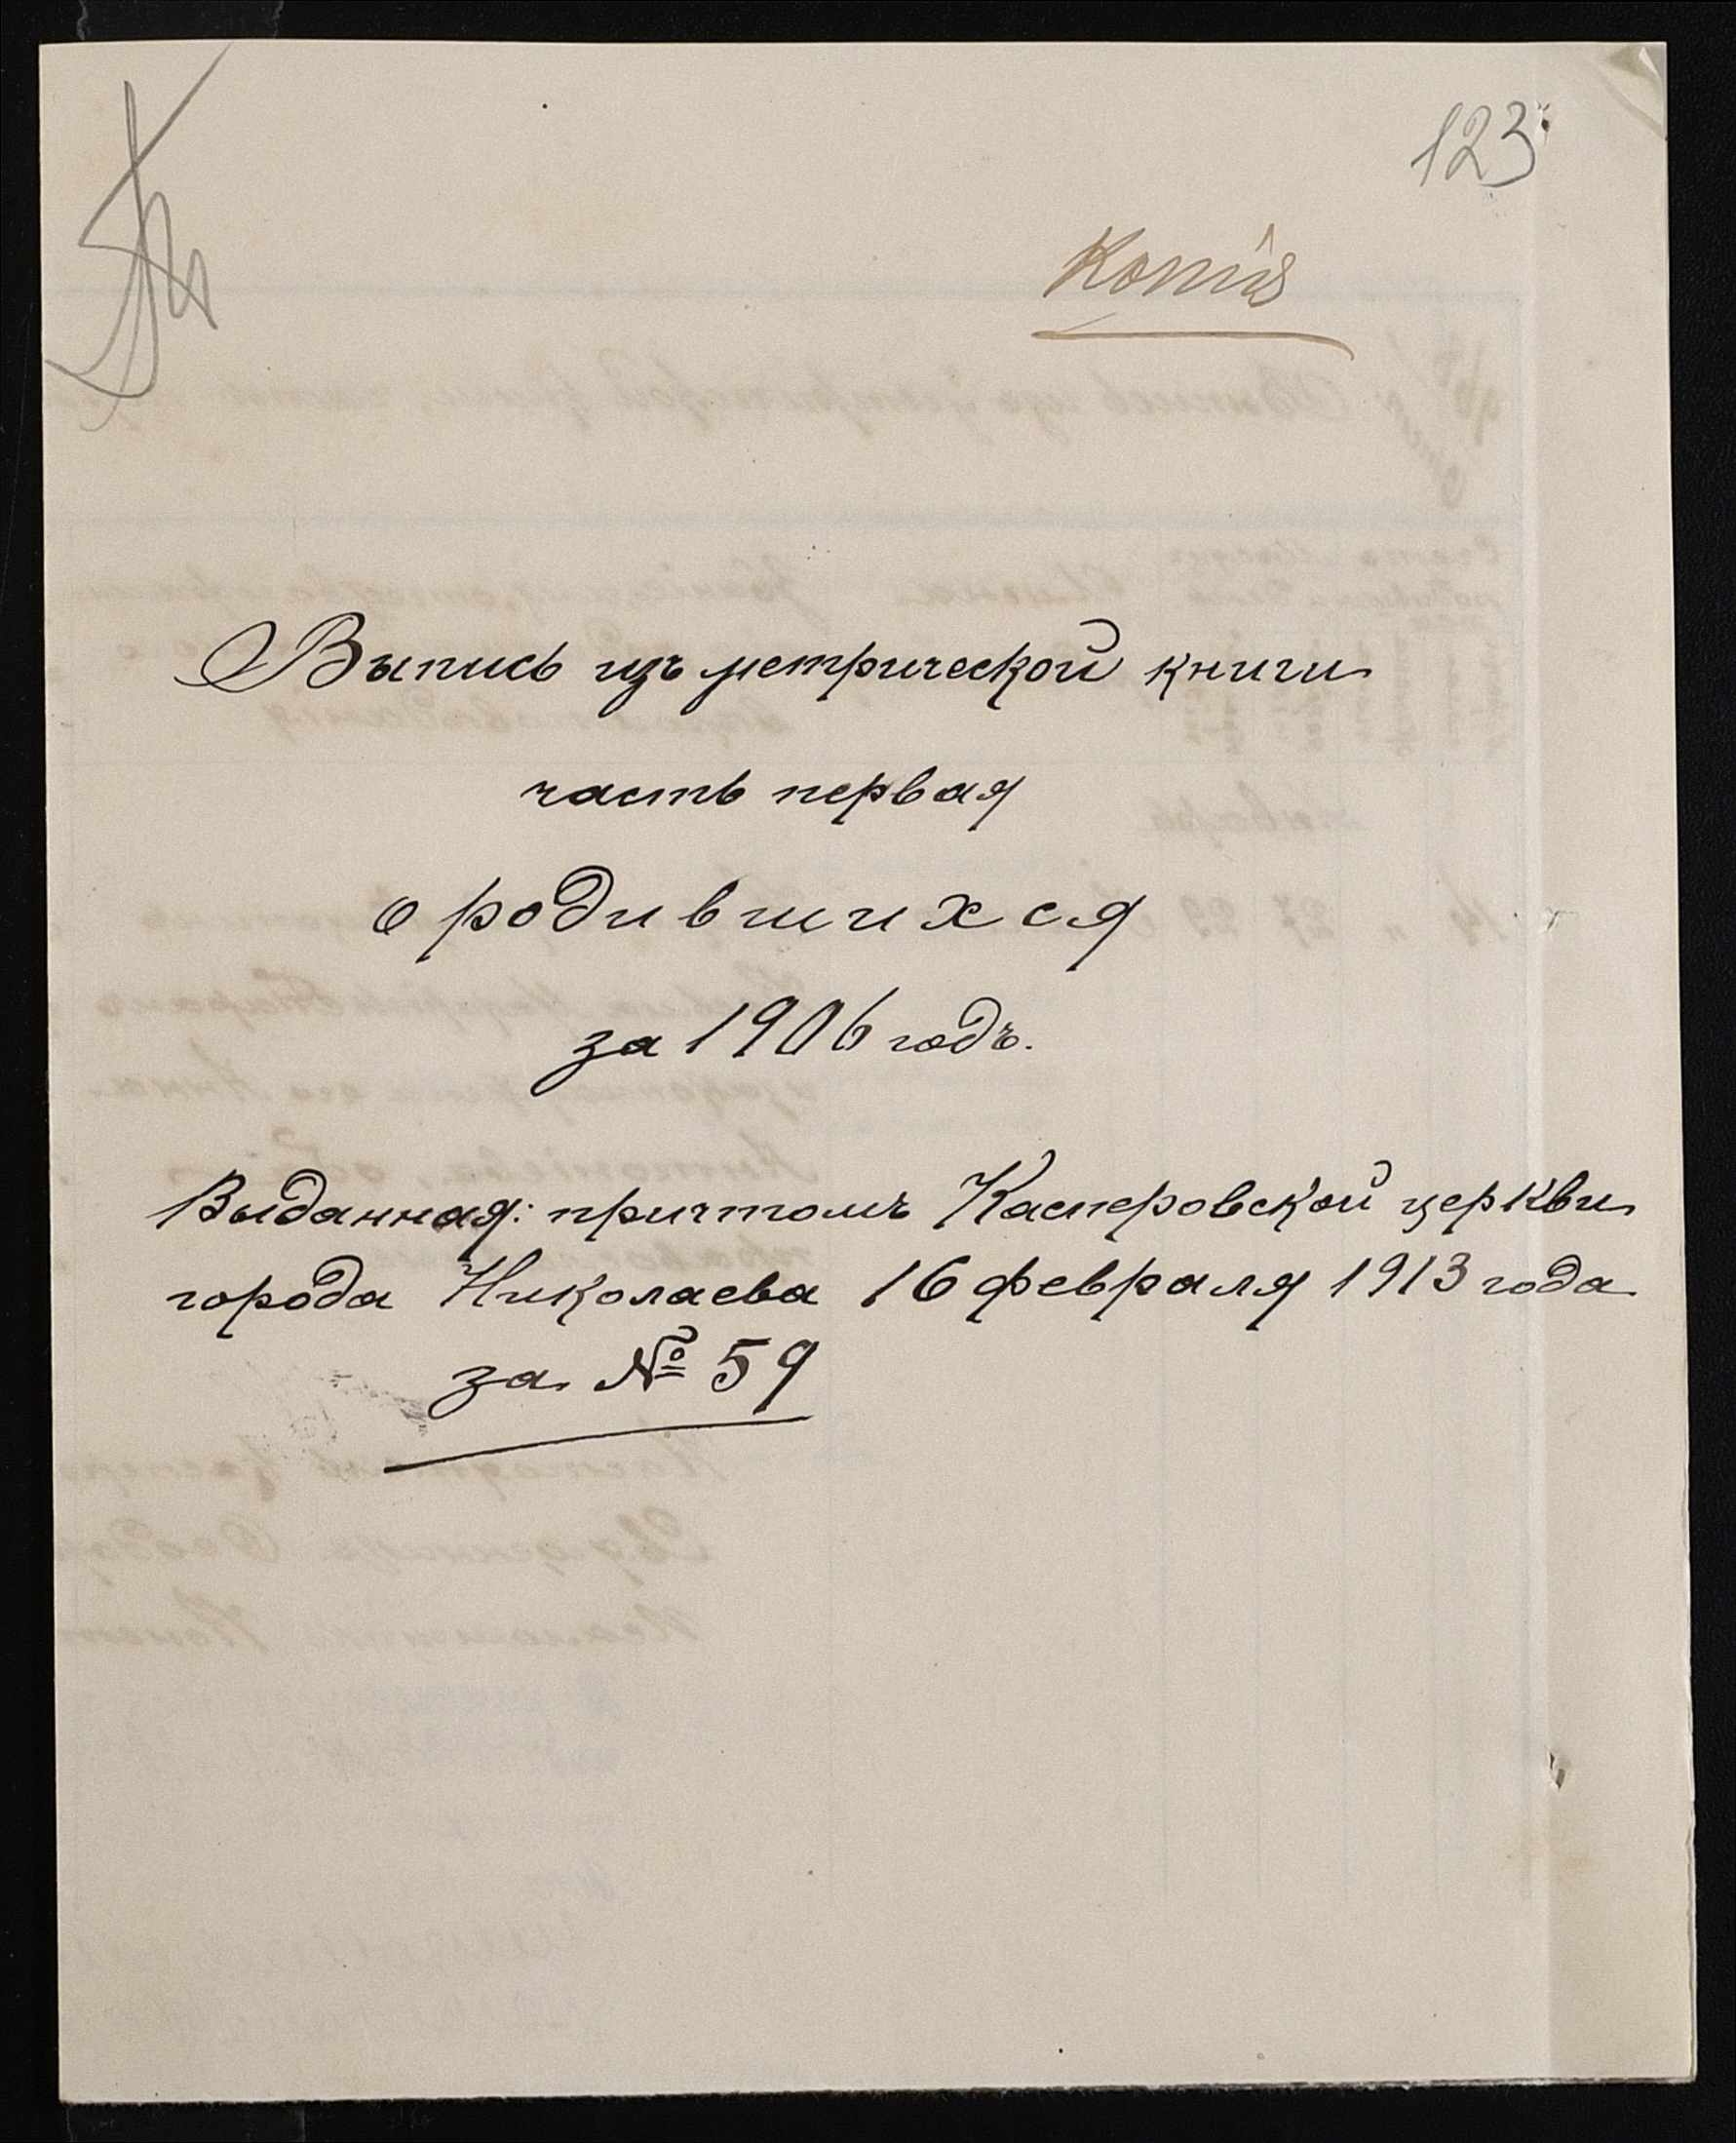 123
Копія
Выпись изъ метрической книги
часть первая
о родившихся
за 1906 годъ.
Выданная: причтомъ Касперовской церкви
города Николаева 16 февраля 1913 года
за № 59